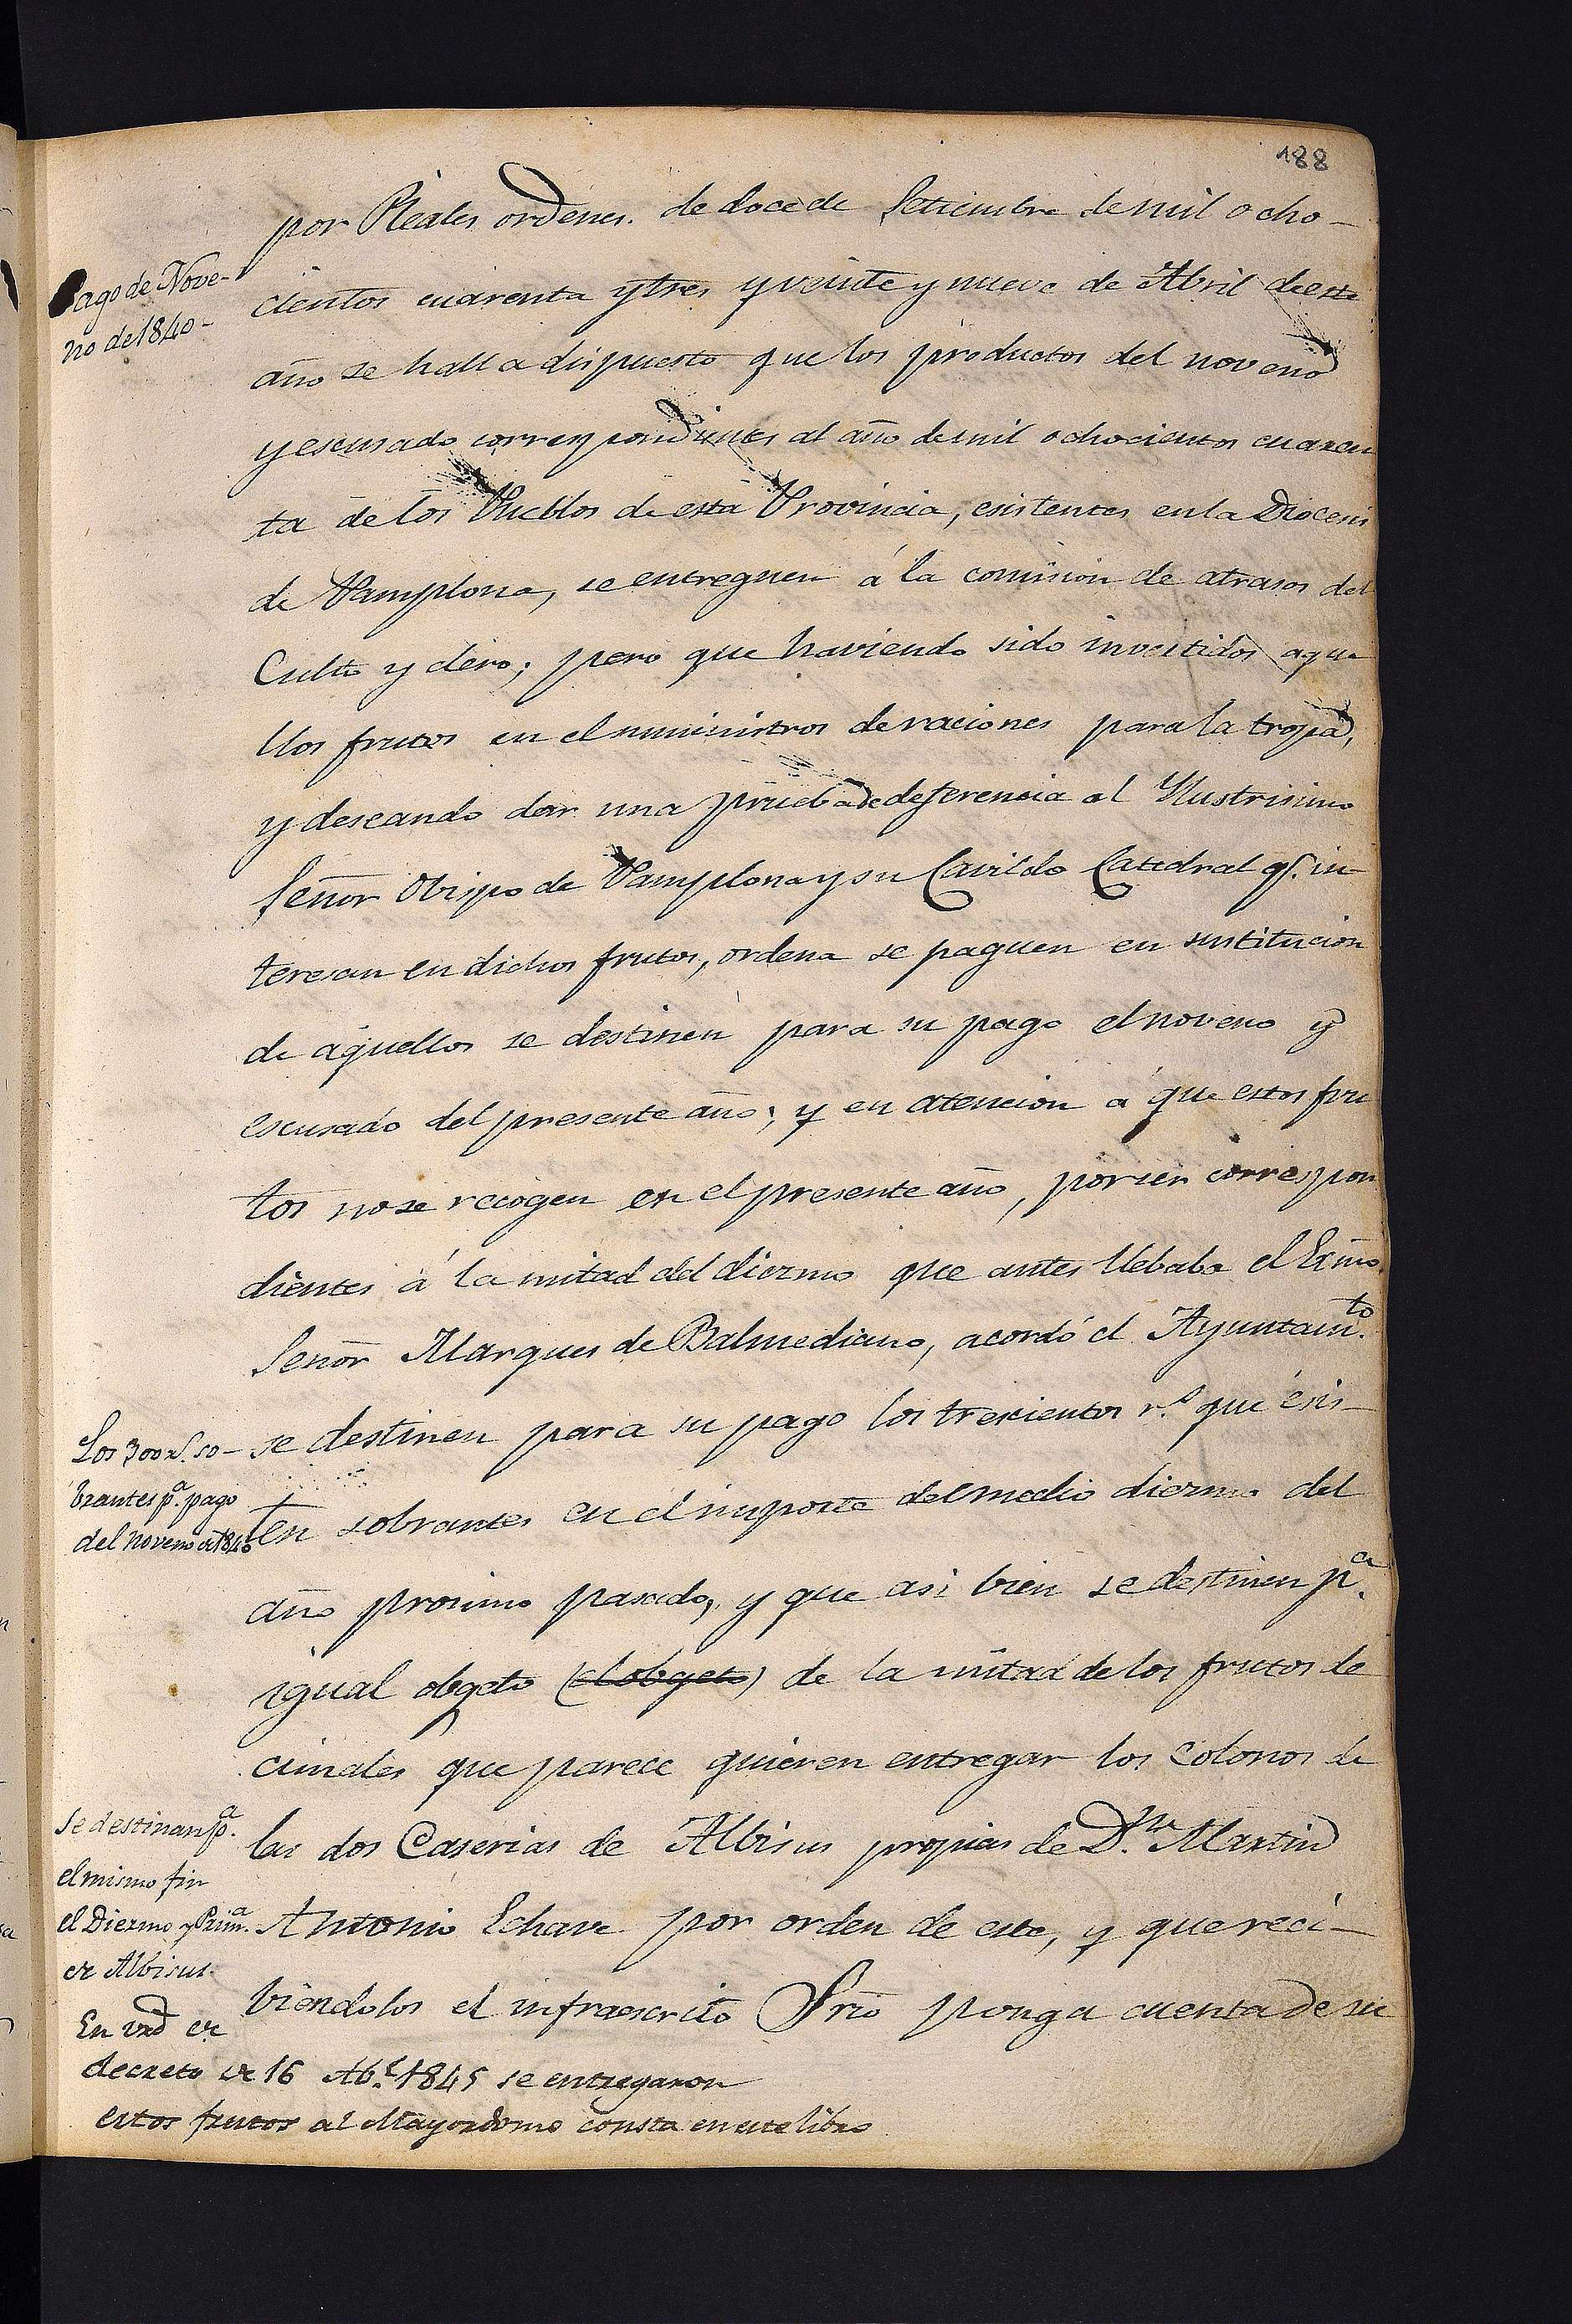 188
por Reales ordenes. de doce de Setiembre de mil ocho-
Pago de Nove-
no de 1840-
cientos cuarenta y tres y veinte y nueve de Abril de este
año se halla dispuesto que los productos del noveno
y escusado correspondientes al año de mil ochocientos cuaren
ta de los Pueblos de esta Provincia, esistentes en la Diocesis
de Pamplona, se entreguen á la comision de atrasos del
Culto y clero; pero que haviendo sido invertidos aque
llos frutos en el suministros de raciones para la tropa,
y deseando dar una prueba de deferencia al Ylustrisimo
Señor Obispo de Pamplona y su Cavildo Catedral qe. in-
teresan en dichos frutos, ordena se paguen en sustitucion
de aquellos se destinen para su pago el noveno y
escusado del presente año; y en atencion á que estos fru
tos no se recogen en el presente año, por ser correspon
dientes á la mitad del diezmo que antes llebaba el Exmo.
Señor Marques de Balmediano, acordó el Ayuntamto.
se destinen para su pago los trescientos rs. que esis-
Los 300 rs. so-
brantes pa. pago
del noveno de 1840
ten sobrantes en el importe del medio diezmo del
año prosimo pasado, y que asi bien se destinen pa.
igual obgeto (el obgeto) de la mitad de los frutos de
cimales que parece quieren entregar los colonos de
las dos Caserias de Albisus propias de Dn. Martin
Se destinan pa.
el mismo fin
el Diezmo y Prima.
de Albisus.
Antonio Echave por orden de este, y que reci-
biendolos el infraescrito Srio ponga cuenta de su
En vrd de
decreto de 16 Abl. 1845 se entregaron
estos frutos al Mayordomo consta en este libro